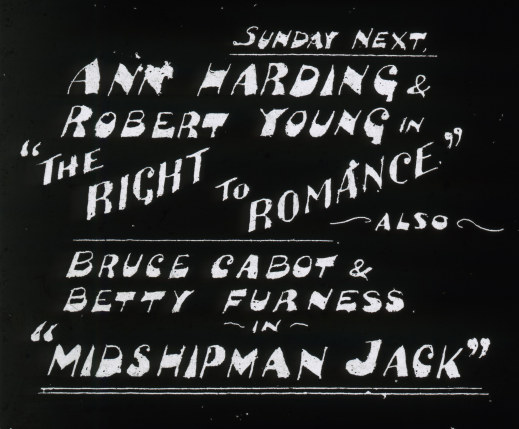 SUNDAY NEXT.
ANN HARDING &
ROBERT YOUNG IN
"THE RIGHT TO ROMANCE."
~ALSO~
BRUCE CABOT &
BETTY FURNESS.
~IN~
"MIDSHIPMAN JACK"